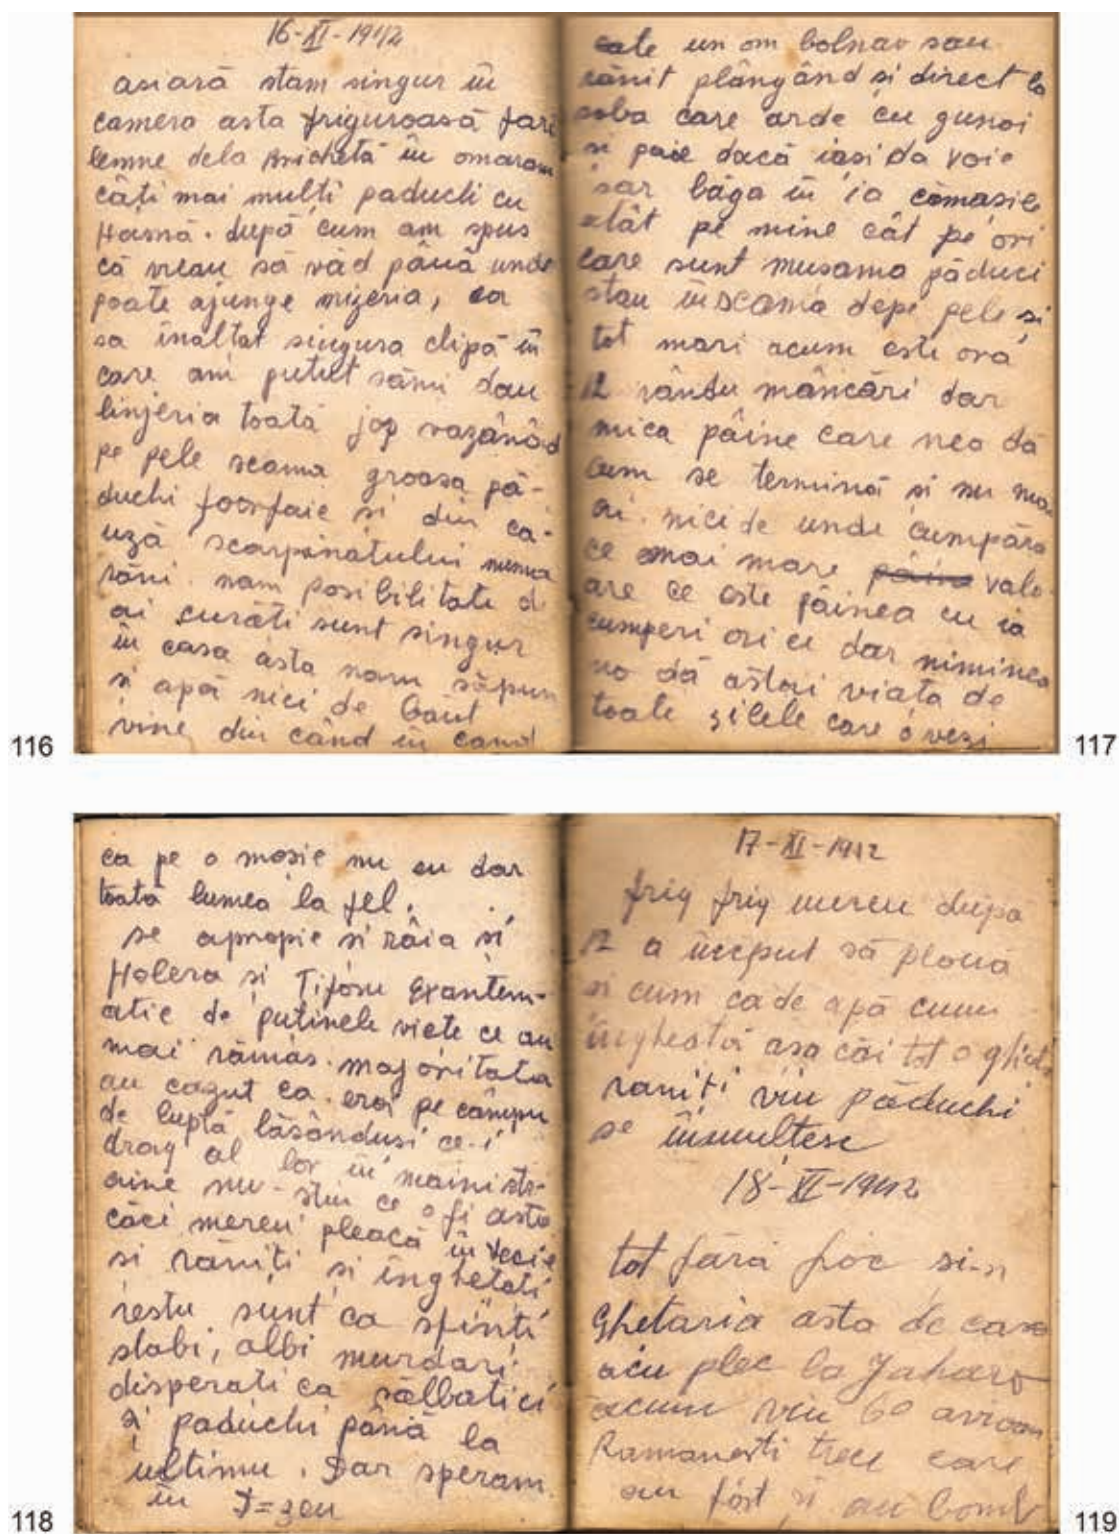 16-XI-1942
asiară stam singur în
camera asta friguroasă fară
lemne dela Brichetă în omaram
câți mai multi paduchi cu
Hasnă. după cum am spus
că vreau să văd până unde
poate ajunge mizeria, ea
sa înaltat singura clipă în
care am putut sămi dau
linjeria toată jos vazând
pe pele scama groasa pă-
duchi foorfaie și din ca-
uză scarpinatului numa
răni. nam posibilitate d
ai curăti sunt singur
în casa asta nam săpun
si apă nici de baut
vine din când in cand
116
cate un om bolnav sau
rănit plângând si direct la
soba care arde cu gunoi
si paie dacă iasi da voie
sar băga în ia cămasile
atât pe mine cât pe ori
care sunt musama păduci
stau înscama depe pele si
tot mari acum este ora
12 rându mâncări dar
mica pâine care neo dă
cum se termină si nu mai
ai nici de unde cumpăra
ce mai mare valo-
are ce este pâinea cu ia
cumperi ori ce dar niminea
no dă astai viata de
toate zilele care o vezi
117
ca pe o mosie nu eu dar
toată lumea la fel.
se apropie si râia si
Holera si Tifosu Exantem-
atic de putinele viete ce au
mai rămas. majoritatea
au cazut ca eroi pe câmpu
de luptă lăsândusi ce-i
drag al lor în maini str-
aine nu-stiu ce o fi asta
căci mereu pleacă în vecie
si răniți si înghetati
restu sunt ca sfinti
slabi, albi murdari
disperati ca sălbatici
si paduchi până la
ultimu. Dar speram
in D=zeu
118
17-XI-1942
frig frig mereu după
12 a început să plouă
si cum cade apă cum
îngheată asa căi tot o ghiata
raniti viu păduchi
se înmultesc
18-XI-1942
tot fără foc si-n
Ghetaria asta de casa
acu plec la Jaharo
acum viu 60 avioan
Ramanesti trece care
au fost si au bomb
119